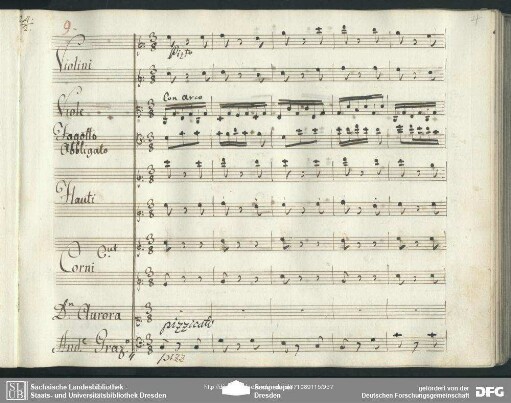 9.
4
Violini
Pizto
Viole
Con arco
Fagotto
Obbligato
Flauti
Corni
C ut
Dn Aurora
pizzicati
And: Graz:
pizz
SLUB
Sächsische Landesbibliothek
Staats- und Universitätsbibliothek Dresden
Dresden
gefördert von der
Deutschen Forschungsgemeinschaft
DFG